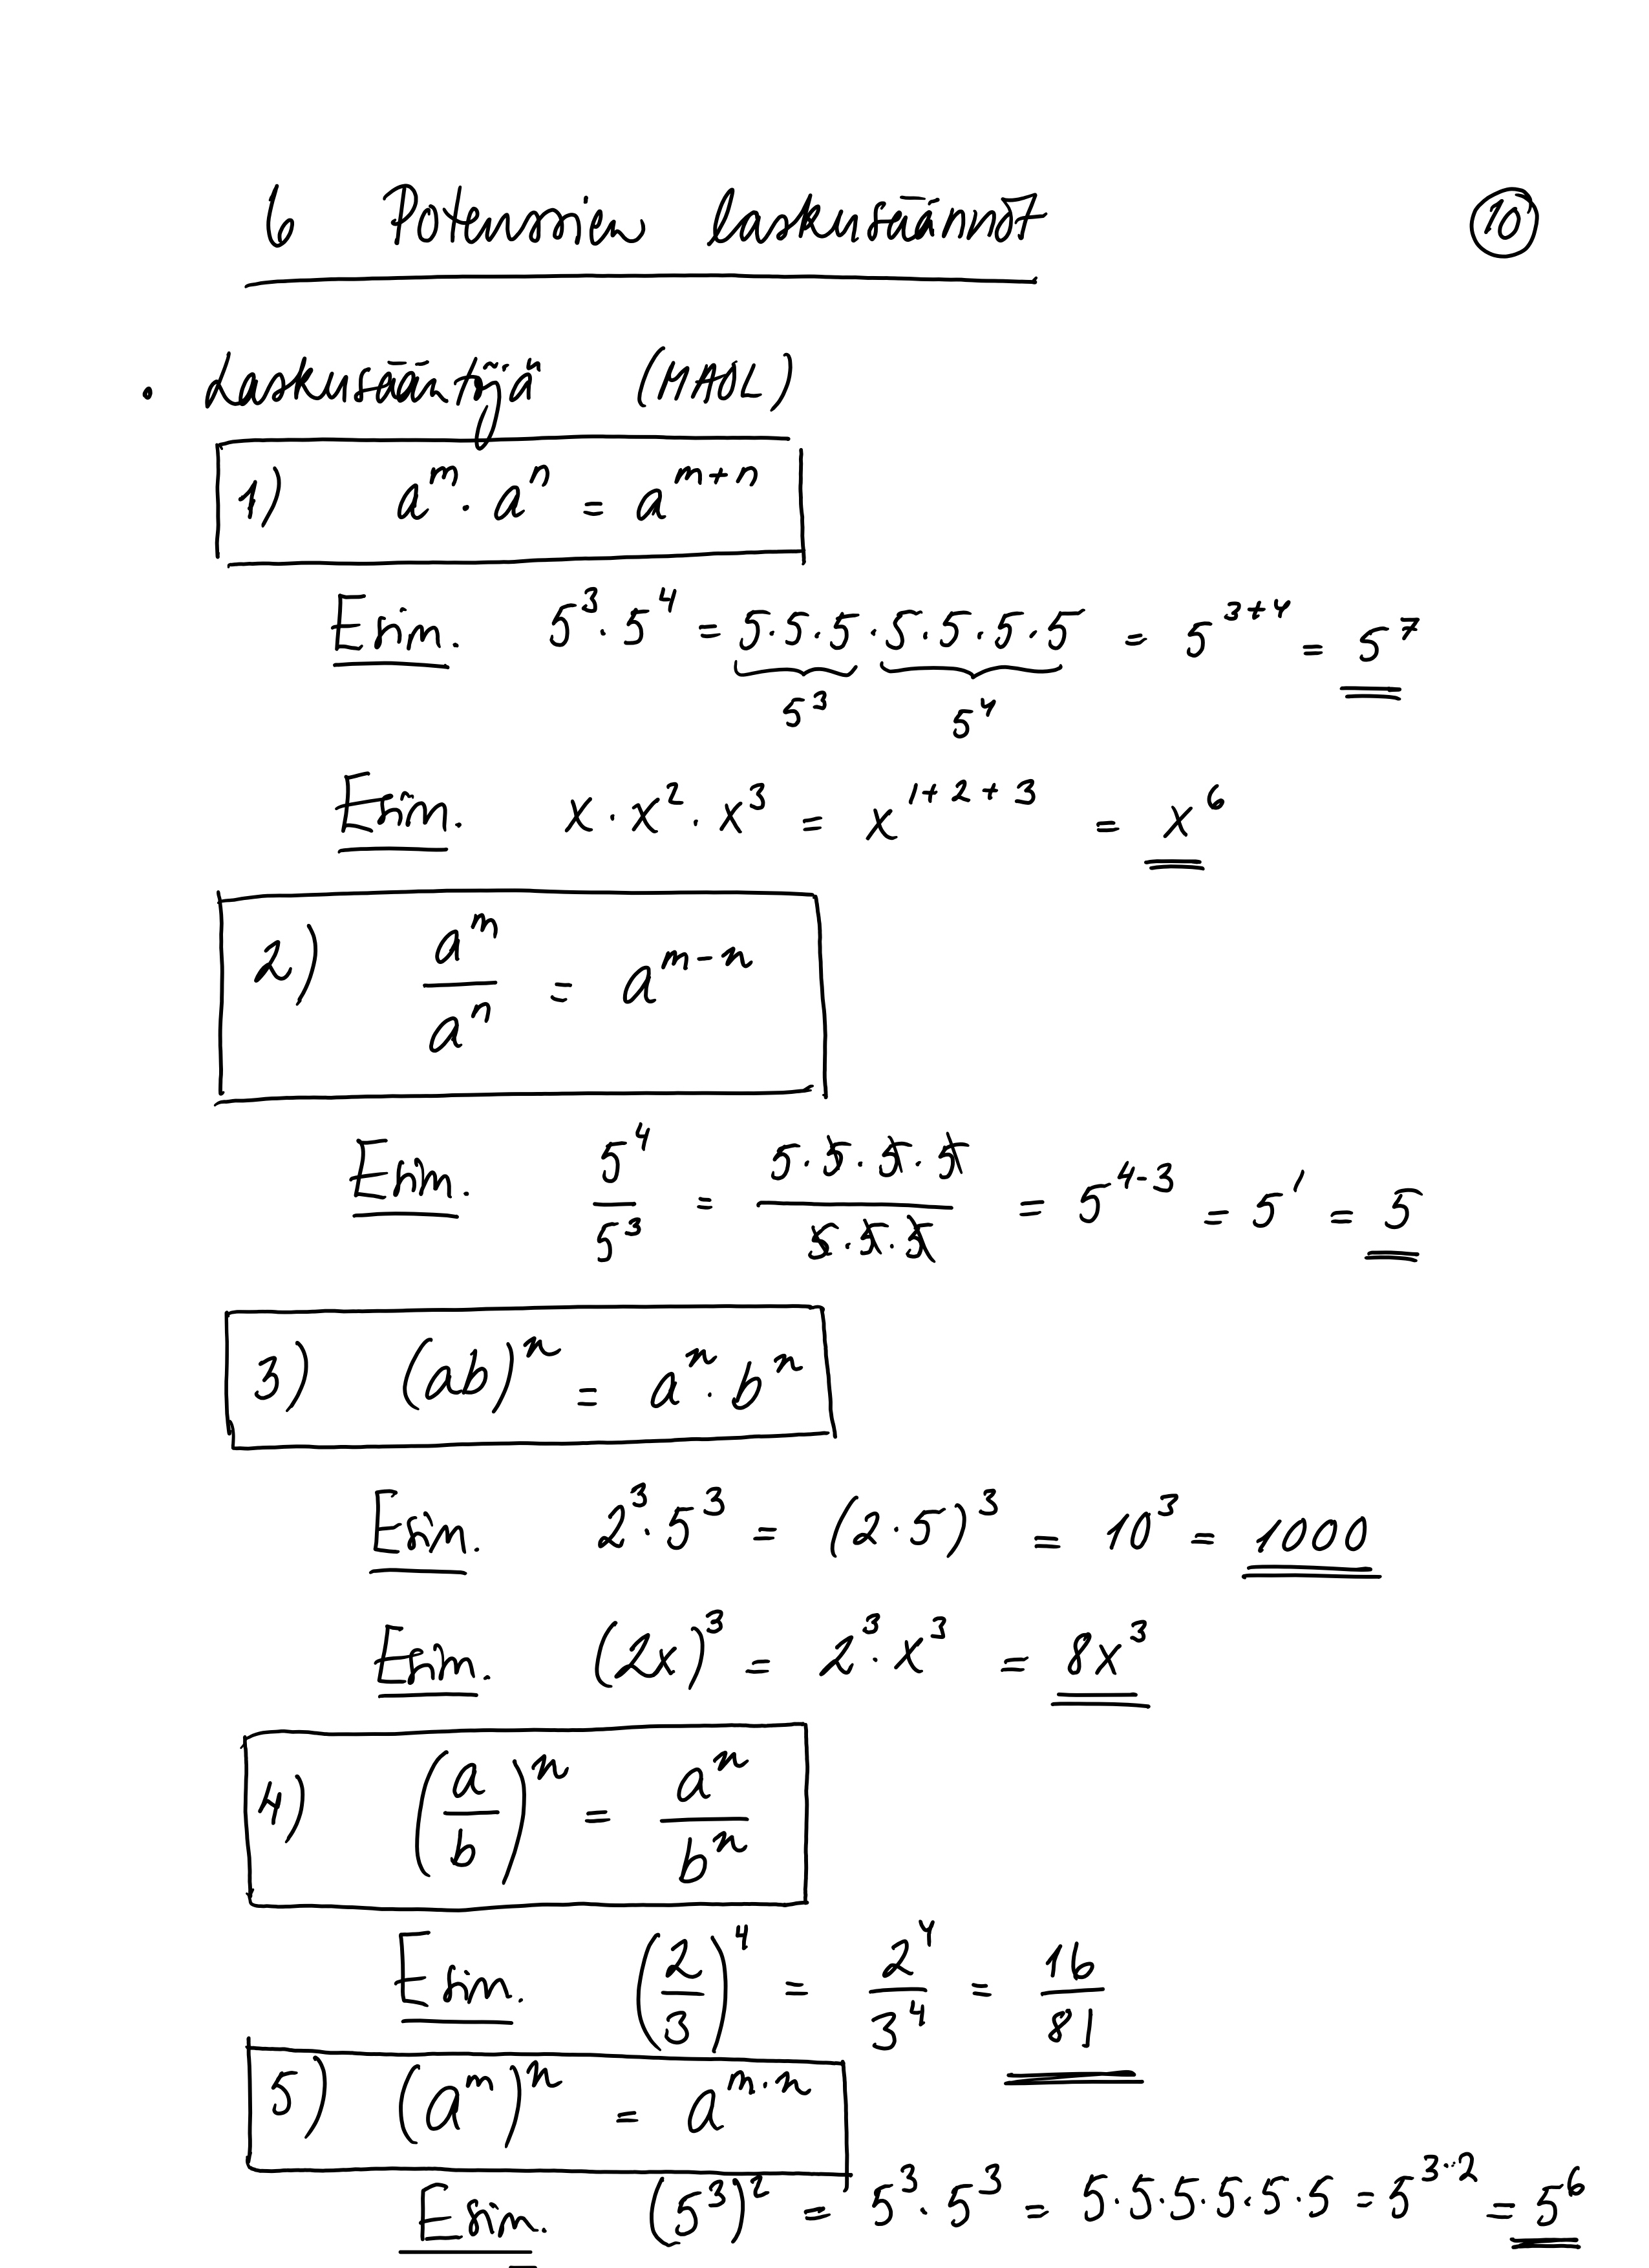 6 Potenssien laskusäännöt ⑩
• Laskusääntöjä (MAOL)
1) a^m · a^n = a^(m+n)
Esim. 5^3 · 5^4 = 5·5·5·5·5·5·5 = 5^(3+4) = 5^7
5^3 5^4
Esim. x · x^2 · x^3 = x^(1+2+3) = x^6
2) a^m / a^n = a^(m-n)
Esim. 5^4 / 5^3 = 5·5·5·5 / 5·5·5 = 5^(4-3) = 5^1 = 5
3) (ab)^n = a^n · b^n
Esim. 2^3 · 5^3 = (2·5)^3 = 10^3 = 1000
Esim. (2x)^3 = 2^3 · x^3 = 8x^3
4) (a/b)^n = a^n / b^n
Esim. (2/3)^4 = 2^4 / 3^4 = 16/81
5) (a^m)^n = a^(m·n)
Esim. (5^3)^2 = 5^3 · 5^3 = 5·5·5·5·5·5 = 5^(3·2) = 5^6